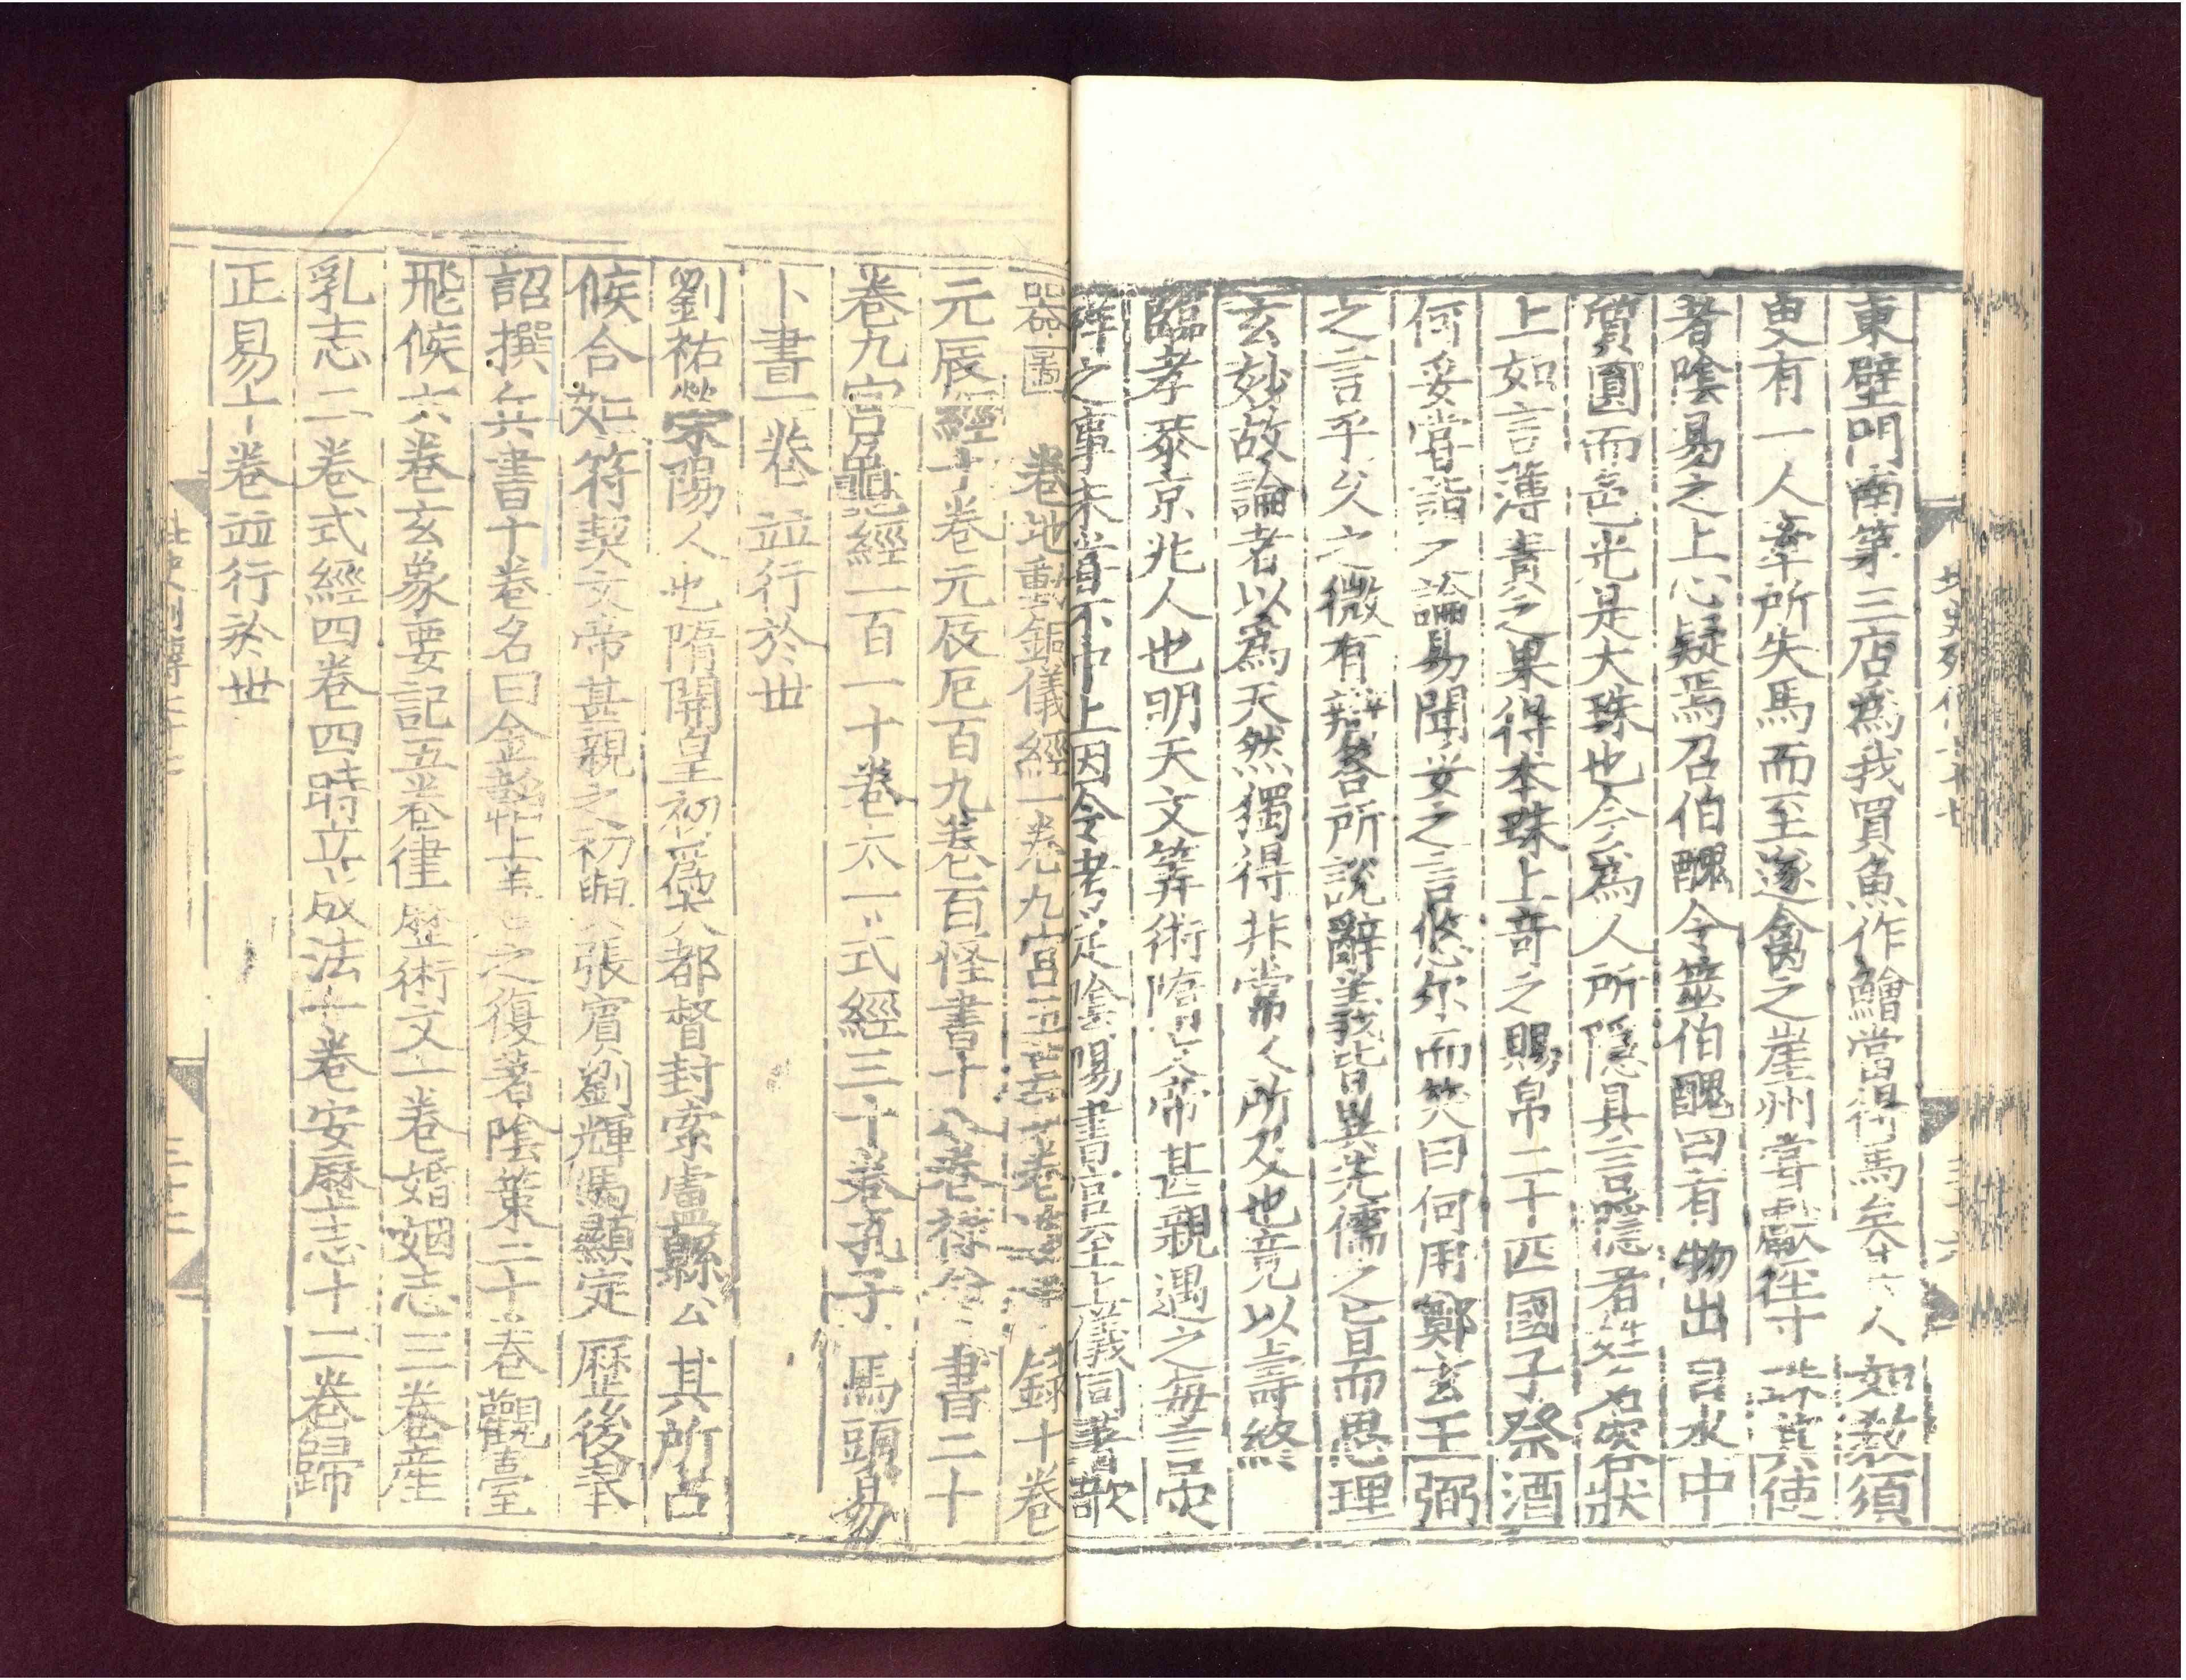 東壁門南第三店爲我買魚作鱠當得馬矣其人如教須
臾有一人牽所失馬而至遂禽之崖州嘗獻徑寸珠其使
者陰易之上心疑焉召伯醜令筮伯醜曰有物出自水中
質圓而色光是大珠也今爲人所隱具言隱者姓名容狀
上如言簿責之果得本珠上奇之賜帛二十匹國子祭酒
何妥嘗詣之論易聞妥之言悠尔而笑曰何用鄭玄王弼
之言乎久之微有辯荅所說辭義皆異先儒之旨而思理
玄妙故論者以爲天然獨得非常人所及也竟以壽終
臨孝恭京兆人也明天文筭術隋文帝甚親遇之每言灾
祥之事未嘗不中上因令考定陰陽書官至上儀同著欹
器圖 卷地動銅儀經一卷九宮五 卷 錄十卷
元辰經十卷元辰厄百九卷百怪書十八卷祿命書二十
卷九宮龜經一百一十卷太一式經三十卷孔子馬頭易
卜書一卷並行於世
劉祐滎陽人也隋開皇初爲大都督封索盧縣公其所占
候合如符契文帝甚親之初與張賓劉輝馬顯定歷後奉
詔撰兵書十卷名曰金韜上善之復著陰策二十卷觀臺
飛候六卷玄象要記五卷律歷術文一卷婚姻志三卷産
乳志二卷式經四卷四時立成法一卷安歷志十二卷歸
正易十卷並行於世
北史列傳七十七
三十二